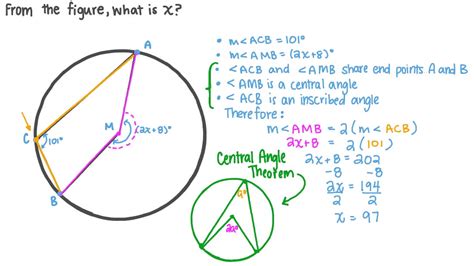 From the figure, what is x?
A
C
101°
M
(2x+8)°
B
• m<ACB = 101°
• m<AMB = (2x+8)°
• <ACB and <AMB share end points A and B
• <AMB is a central angle
• <ACB is an inscribed angle
Therefore:
m<AMB = 2(m<ACB)
2x+8 = 2(101)
2x+8 = 202
-8 -8
2x = 194
2 2
x = 97
Central Angle
Theorem
a°
2a°